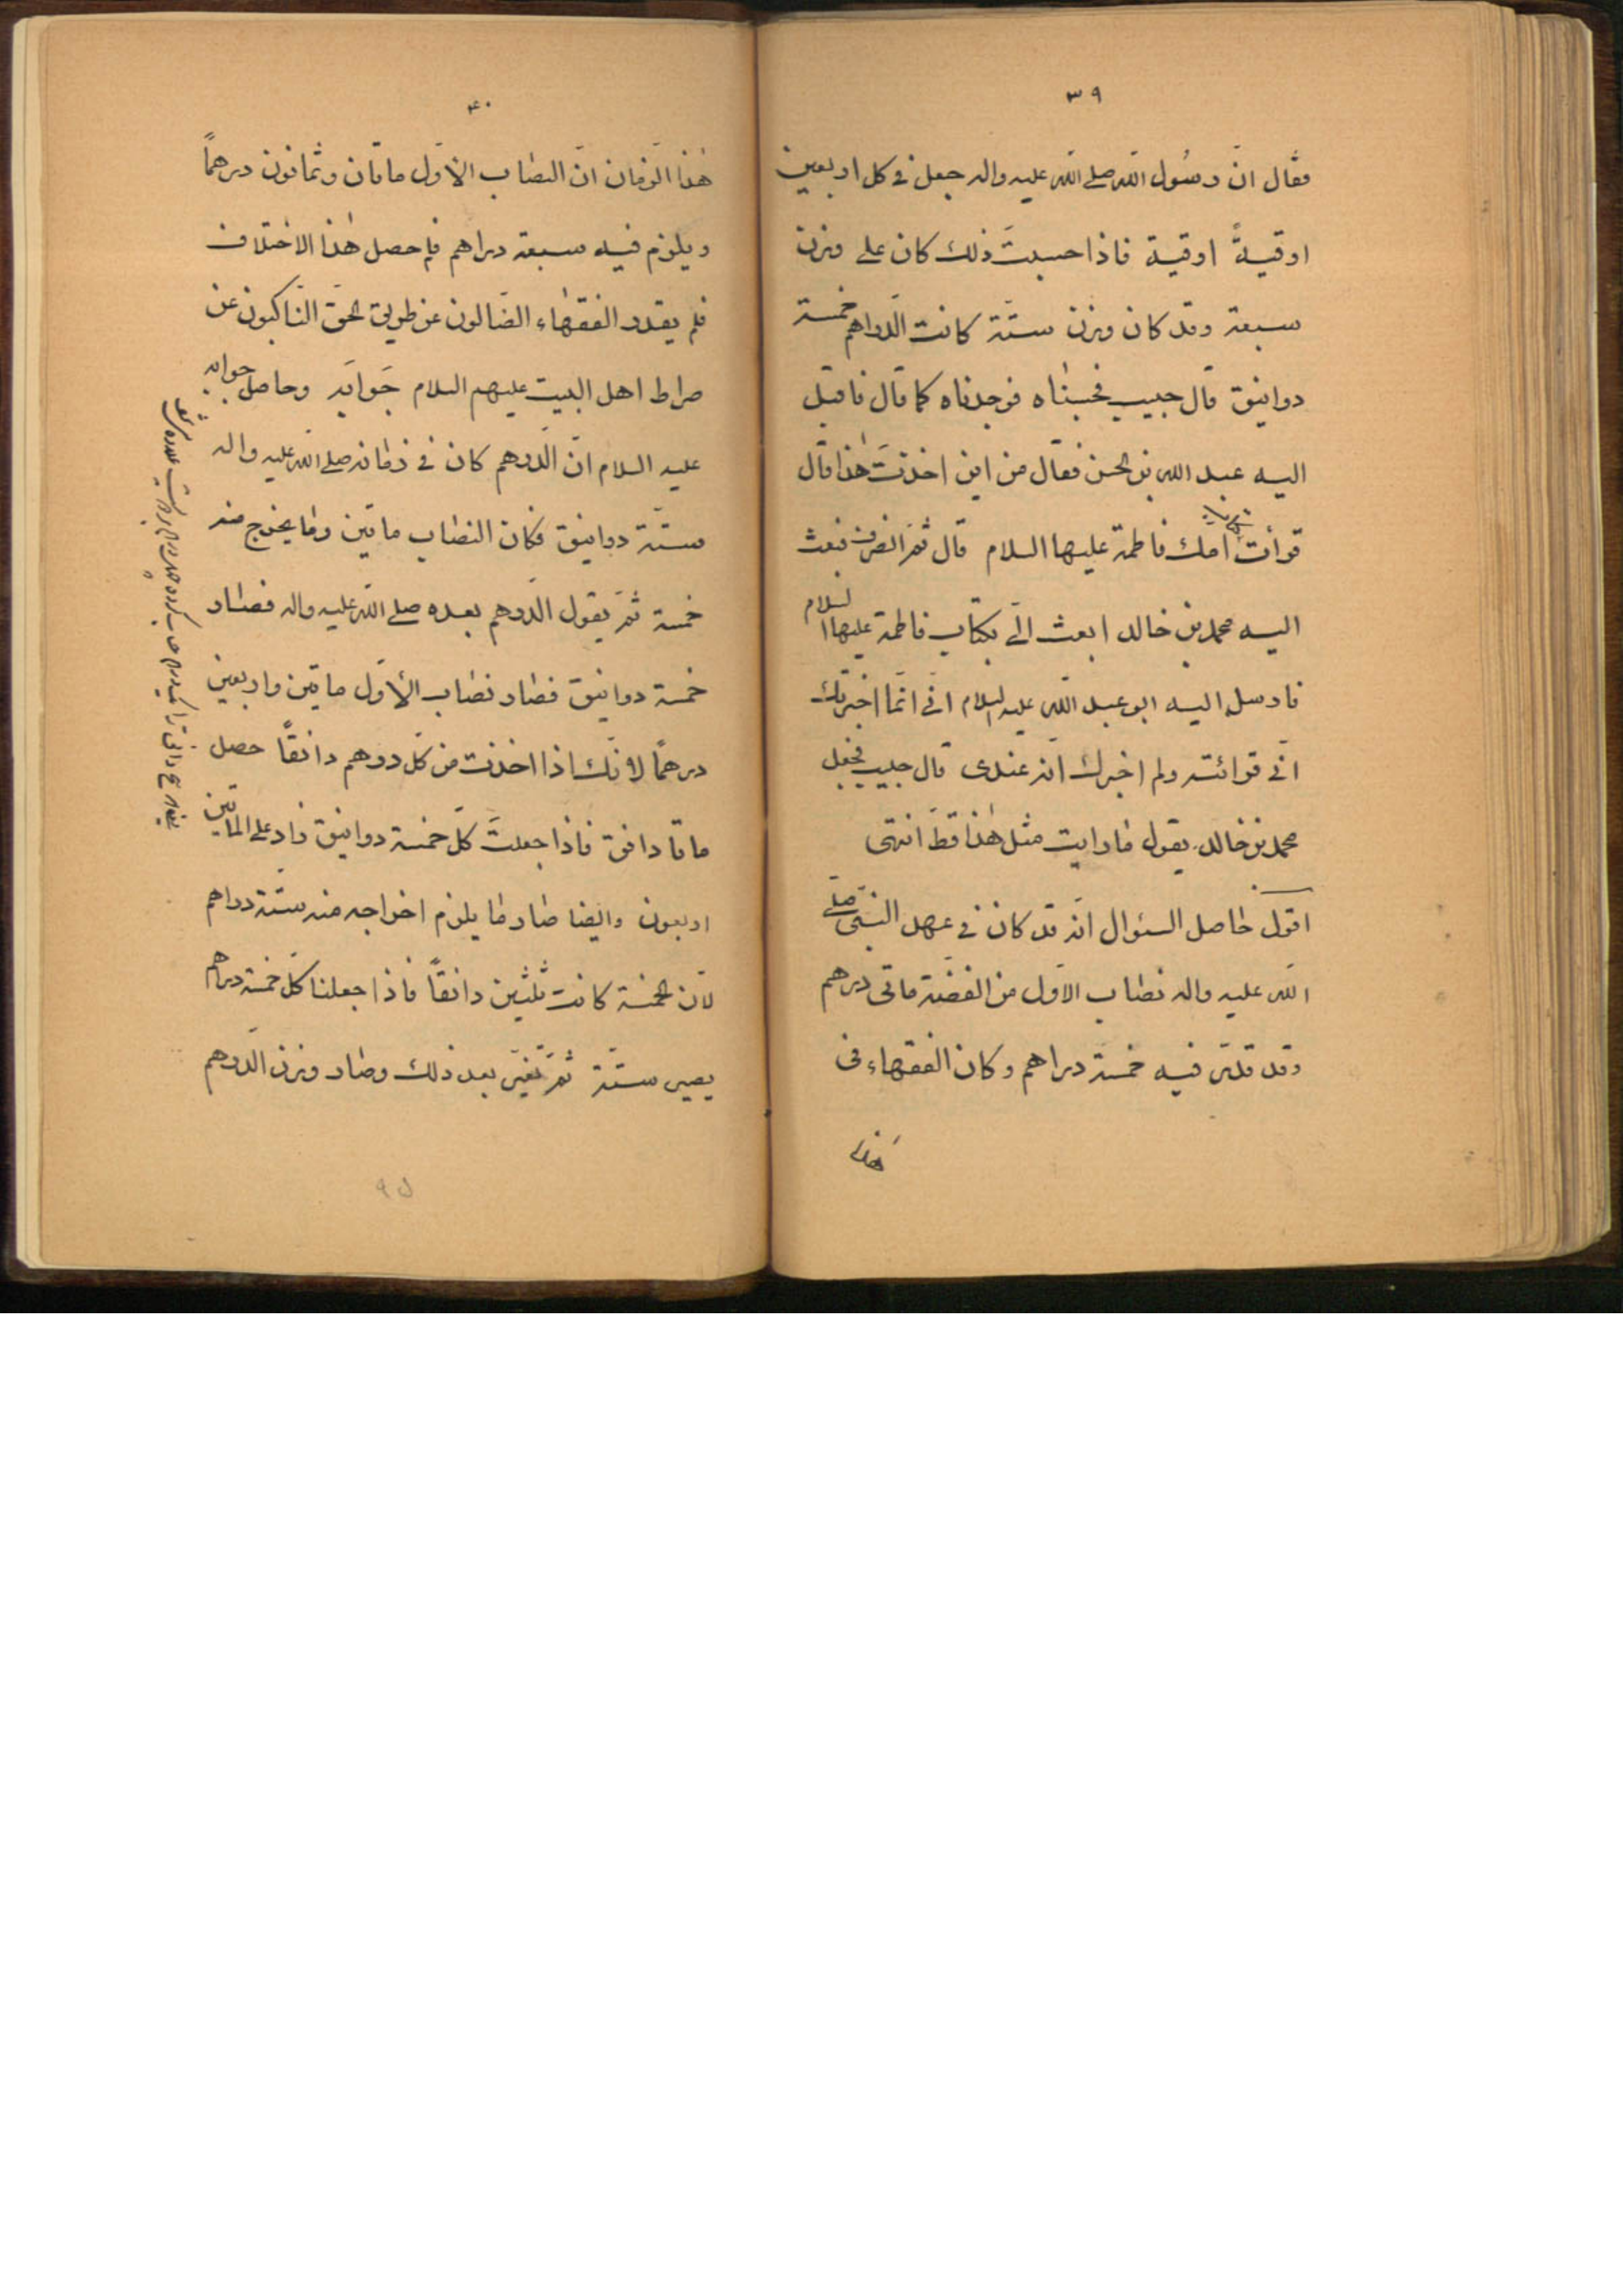 ٣٩
فقال انّ رسُول اللّه صلى اللّه عليه واله جعل في كل اربعين
اوقيةً اوقية فاذا حسبتَ ذلك كان على وزن
سبعة وقد كان وزن ستّة كانت الدّراهم خمسة
دوانيق قال حبيب فحسبناه فوجدناه كما قال فاقبل
اليه عبد الله بن الحسن فقال من اين اخذتَ هٰذا قال
قرأت في كتاب امك فاطمة عليها السلام قال ثمّ انصرف فبعث
اليه محمد بن خالد ابعث الىّ بكتاب فاطمة عليها السلام
فارسل اليه ابو عبد اللّه عليه السلام انّي انّما اخبرتك
انّي قرائته ولم اخبرك انّه عندى قال حبيب فجعل
محمد بن خالد يقول ما رايت مثل هٰذا قطّ انتهى
اقول حاصل السئوال انّه قد كان في عهد النبىّ صلّى
اللّه عليه واله نصاب الاوّل من الفضّة مأتى درهم
وقد قدّر فيه خمسة دراهم وكان الفقهاء فى
هٰذا
۴۰
هٰذا الزّمان انّ النصاب الاوّل ماتان وثمانون درهماً
ويلزم فيه سبعة دراهم فلم حصل هٰذا الاختلاف
فلم يقدر الفقهاء الضّالون عن طريق الحقّ النّاكبون عن
صراط اهل البيت عليهم السلام جَوابَه وحاصل جوابه
عليه السلام انّ الدّرهم كان في زمانه صلى اللّه عليه واله
ستّة دوانيق فكان النصاب ماتين وما يخرج منه
خمسة ثمّ يقول الدّرهم بعده صلى اللّه عليه واله فصار
خمسة دوانيق فصار نصاب الأوّل ماتين واربعين
درهمًا لانّك اذا اخذت من كلّ درهم دانقاً حصل
ماتا دانق فاذا جعلتَ كلّ خمسة دوانيق زاد على الماتين
اربعون وايضا صار ما يلزم اخراجه منه ستّة دراهم
لانّ الخمسة كانت ثلثين دانقاً فاذا جعلنا كلّ خمسة دراهم
يصير ستّة ثمّ تغيّر بعد ذلك وصار وزن الدّرهم